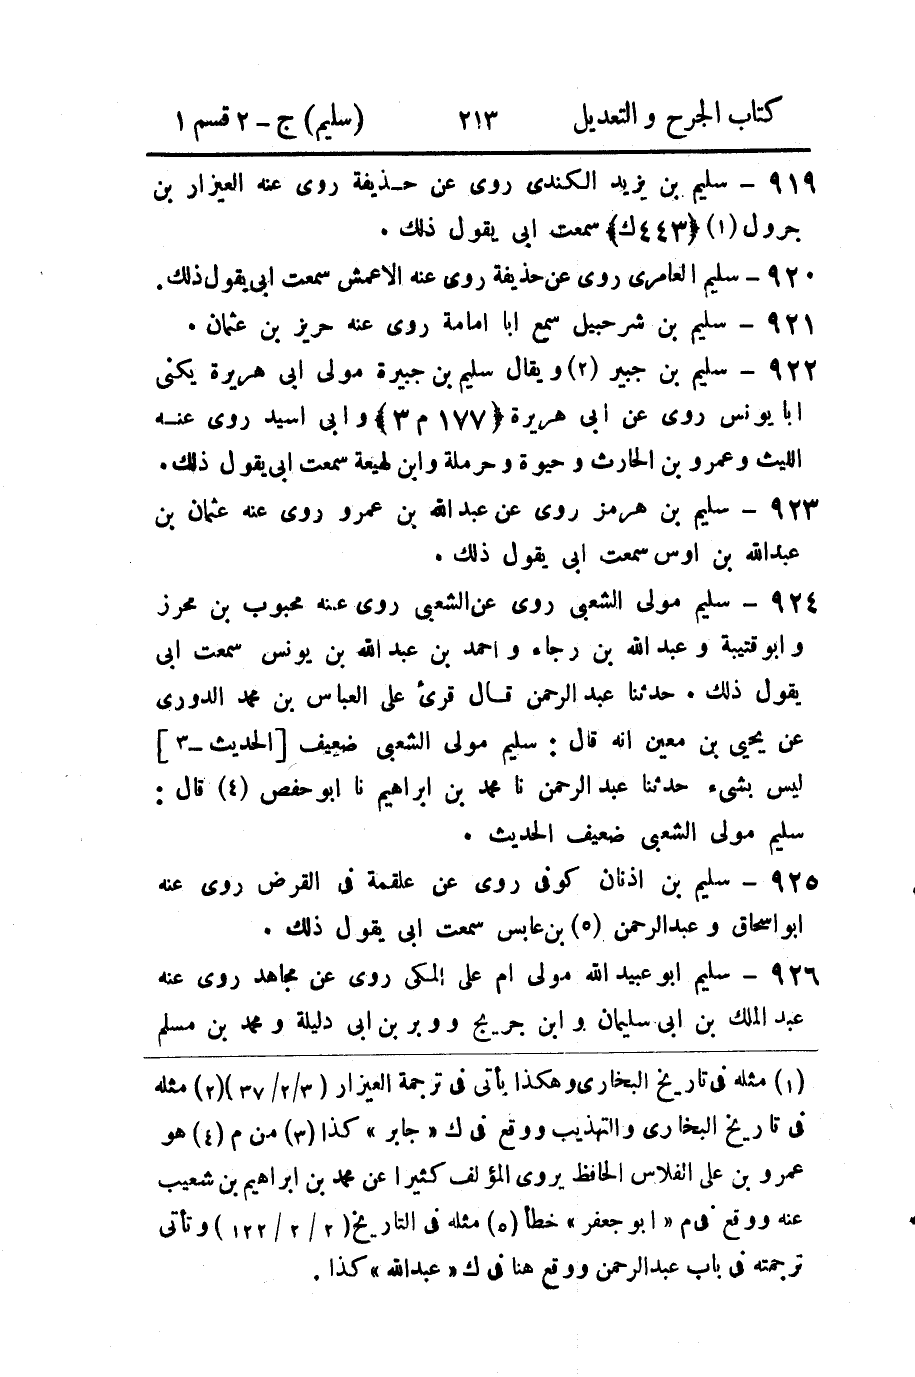 كتاب الجرح و التعديل ٢١٣ (سليم) ج - ٢ قسم ١
٩١٩ - سليم بن يزيد الكندى روى عن حذيفة روى عنه العيزار بن
جرول (١) ﴿٤٤٣ك﴾ سمعت ابى يقول ذلك .
٩٢٠ - سليم العامرى روى عن حذيفة روى عنه الاعمش سمعت ابى يقول ذلك.
٩٢١ - سليم بن شرحبيل سمع ابا امامة روى عنه حريز بن عثمان .
٩٢٢ - سليم بن جبير (٢) و يقال سليم بن جبيرة مولى ابى هريرة يكنى
ابا يونس روى عن ابى هريرة ﴿١٧٧ م ٣﴾ و ابى اسيد روى عنه
الليث و عمرو بن الحارث و حيوة و حرملة و ابن لهيعة سمعت ابى يقول ذلك.
٩٢٣ - سليم بن هرمز روى عن عبد الله بن عمرو روى عنه عثمان بن
عبدالله بن اوس سمعت ابى يقول ذلك .
٩٢٤ - سليم مولى الشعبى روى عن الشعبى روى عنه محبوب بن محرز
و ابو قتيبة و عبد الله بن رجاء و احمد بن عبد الله بن يونس سمعت ابى
يقول ذلك . حدثنا عبد الرحمن قال قرئ على العباس بن محمد الدورى
عن يحيى بن معين انه قال : سليم مولى الشعبى ضعيف [الحديث - ٣]
ليس بشىء حدثنا عبد الرحمن نا محمد بن ابراهيم نا ابو حفص (٤) قال :
سليم مولى الشعبى ضعيف الحديث .
٩٢٥ - سليم بن اذنان كوفى روى عن علقمة فى القرض روى عنه
ابو اسحاق و عبدالرحمن (٥) بن عابس سمعت ابى يقول ذلك .
٩٢٦ - سليم ابو عبيد الله مولى ام على المكى روى عن مجاهد روى عنه
عبد الملك بن ابى سليمان و ابن جريج و وبر بن ابى دليلة و محمد بن مسلم
(١) مثله فى تاريخ البخارى و هكذا يأتى فى ترجمة العيزار (٣/٢/٣٧) (٢) مثله
فى تاريخ البخارى و التهذيب و وقع فى ك « جابر » كذا (٣) من م (٤) هو
عمرو بن على الفلاس الحافظ يروى المؤلف كثيرا عن محمد بن ابراهيم بن شعيب
عنه و وقع فى م « ابو جعفر » خطأ (٥) مثله فى التاريخ (٢/٢/١٢٢) و تأتى
ترجمته فى باب عبدالرحمن و وقع هنا فى ك « عبدالله » كذا .